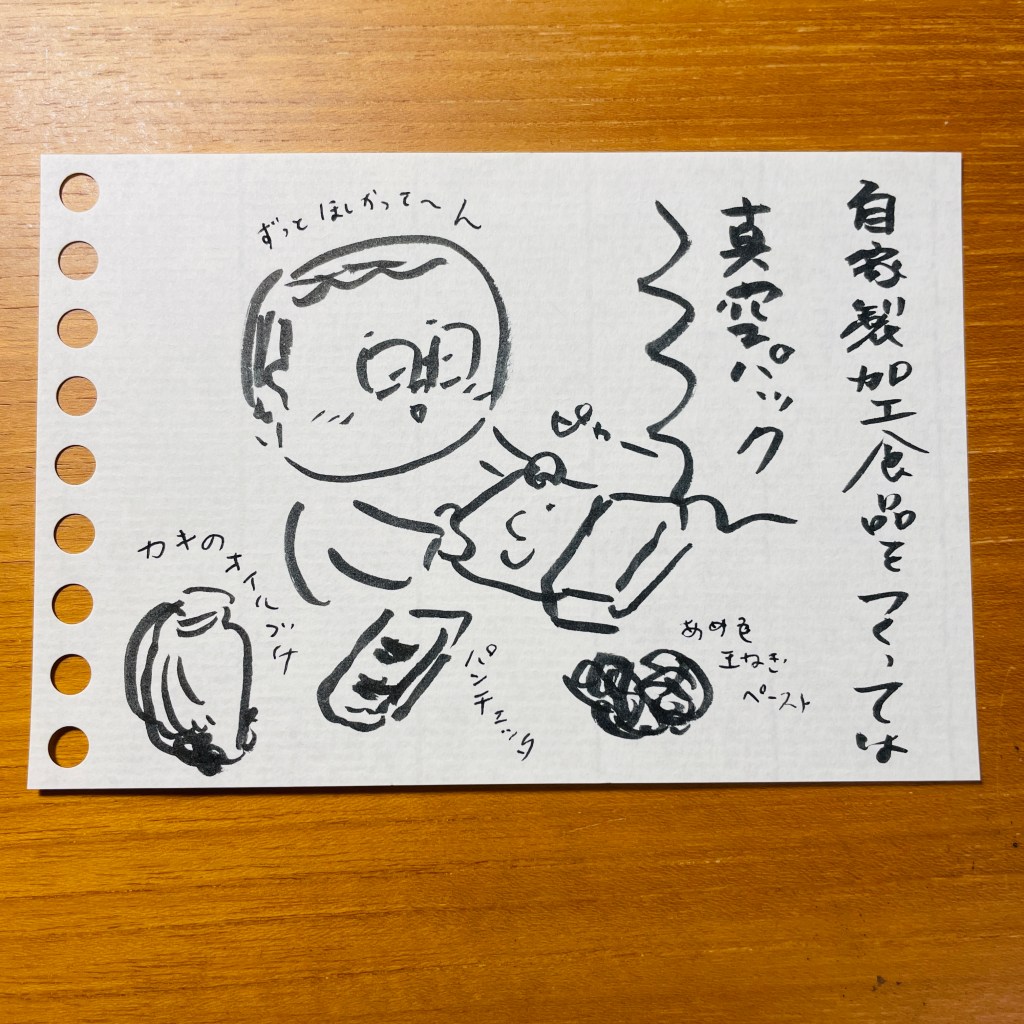 自家製加工食品をつくっては
真空パック
ずっとほしかって〜ん
ぴゃー
カキの
オイル
づけ
パンチェッタ
あめ色
玉ねぎ
ペースト